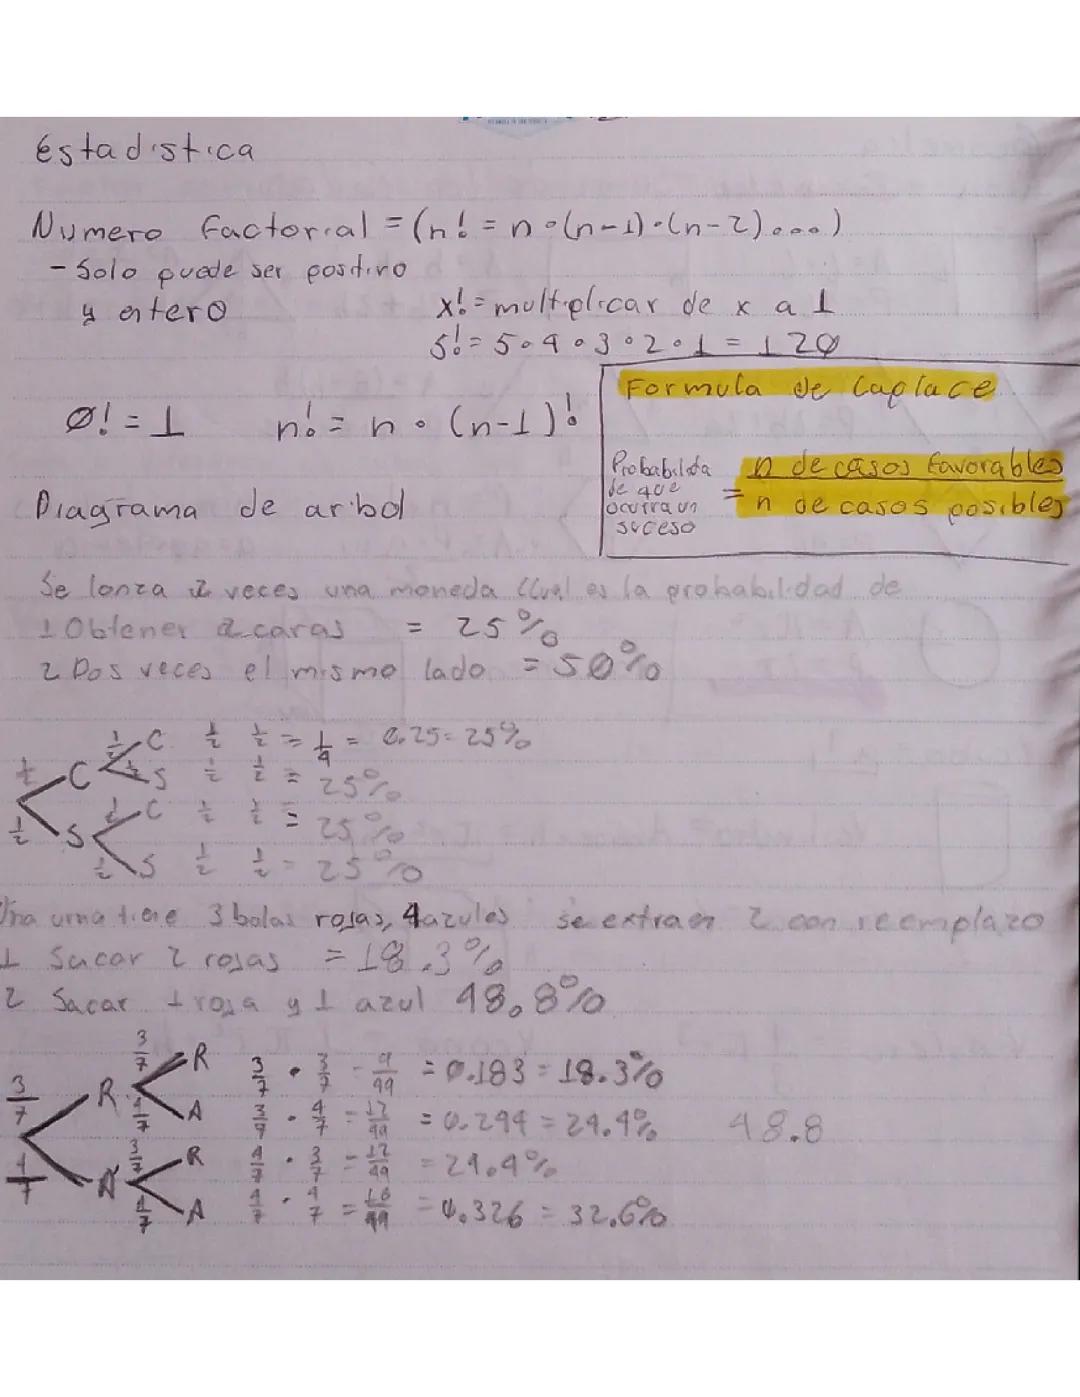 estadistica
Numero factorial = (n! = n∘(n-1)∘(n-2)...)
- Solo puede ser positivo
y entero
x! = multiplicar de x a 1
5! = 5∘4∘3∘2∘1 = 120
Formula de Laplace
0! = 1 n! = n ∘ (n-1)!
Probabilida de que ocurra un suceso = n de casos favorables / n de casos posibles
Diagrama de arbol
Se lanza 2 veces una moneda ¿Cual es la probabilidad de
1 Obtener 2 caras = 25%
2 Dos veces el mismo lado = 50%
1/2 C 1/2 C 1/2 1/2 = 1/4 = 0.25 = 25%
1/2 S 1/2 1/2 = 25%
1/2 S 1/2 C 1/2 1/2 = 25%
1/2 S 1/2 1/2 = 25%
Una urna tiene 3 bolas rojas, 4 azules se extraen 2 con reemplazo
1 Sacar 2 rojas = 18.3%
2 Sacar 1 roja y 1 azul 48,8%
3/7 R 3/7 R 3/7 • 3/7 = 9/49 = 0.183 = 18.3%
4/7 A 3/7 • 4/7 = 12/49 = 0.244 = 24.4% 48.8
4/7 A 3/7 R 4/7 • 3/7 = 12/49 = 24.4%
4/7 A 4/7 • 4/7 = 16/49 = 0.326 = 32.6%